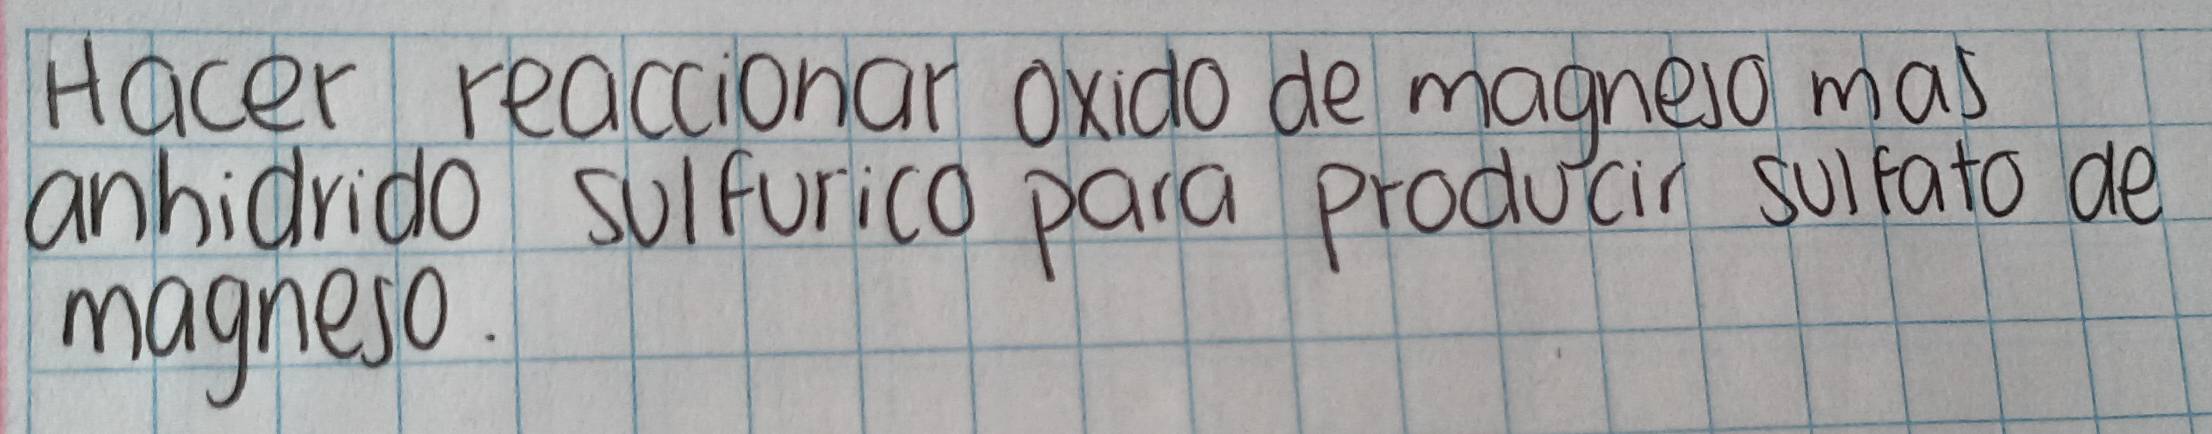 Hacer reaccionar oxido de magneso mas
anhidrido sulfurico para producir sulfato de
magneso.